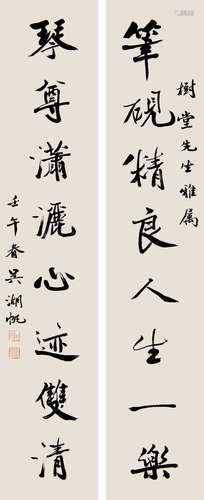 樹堂先生雅屬
筆硯精良人生一樂
琴尊瀟灑心迹雙清
壬午春吳湖帆